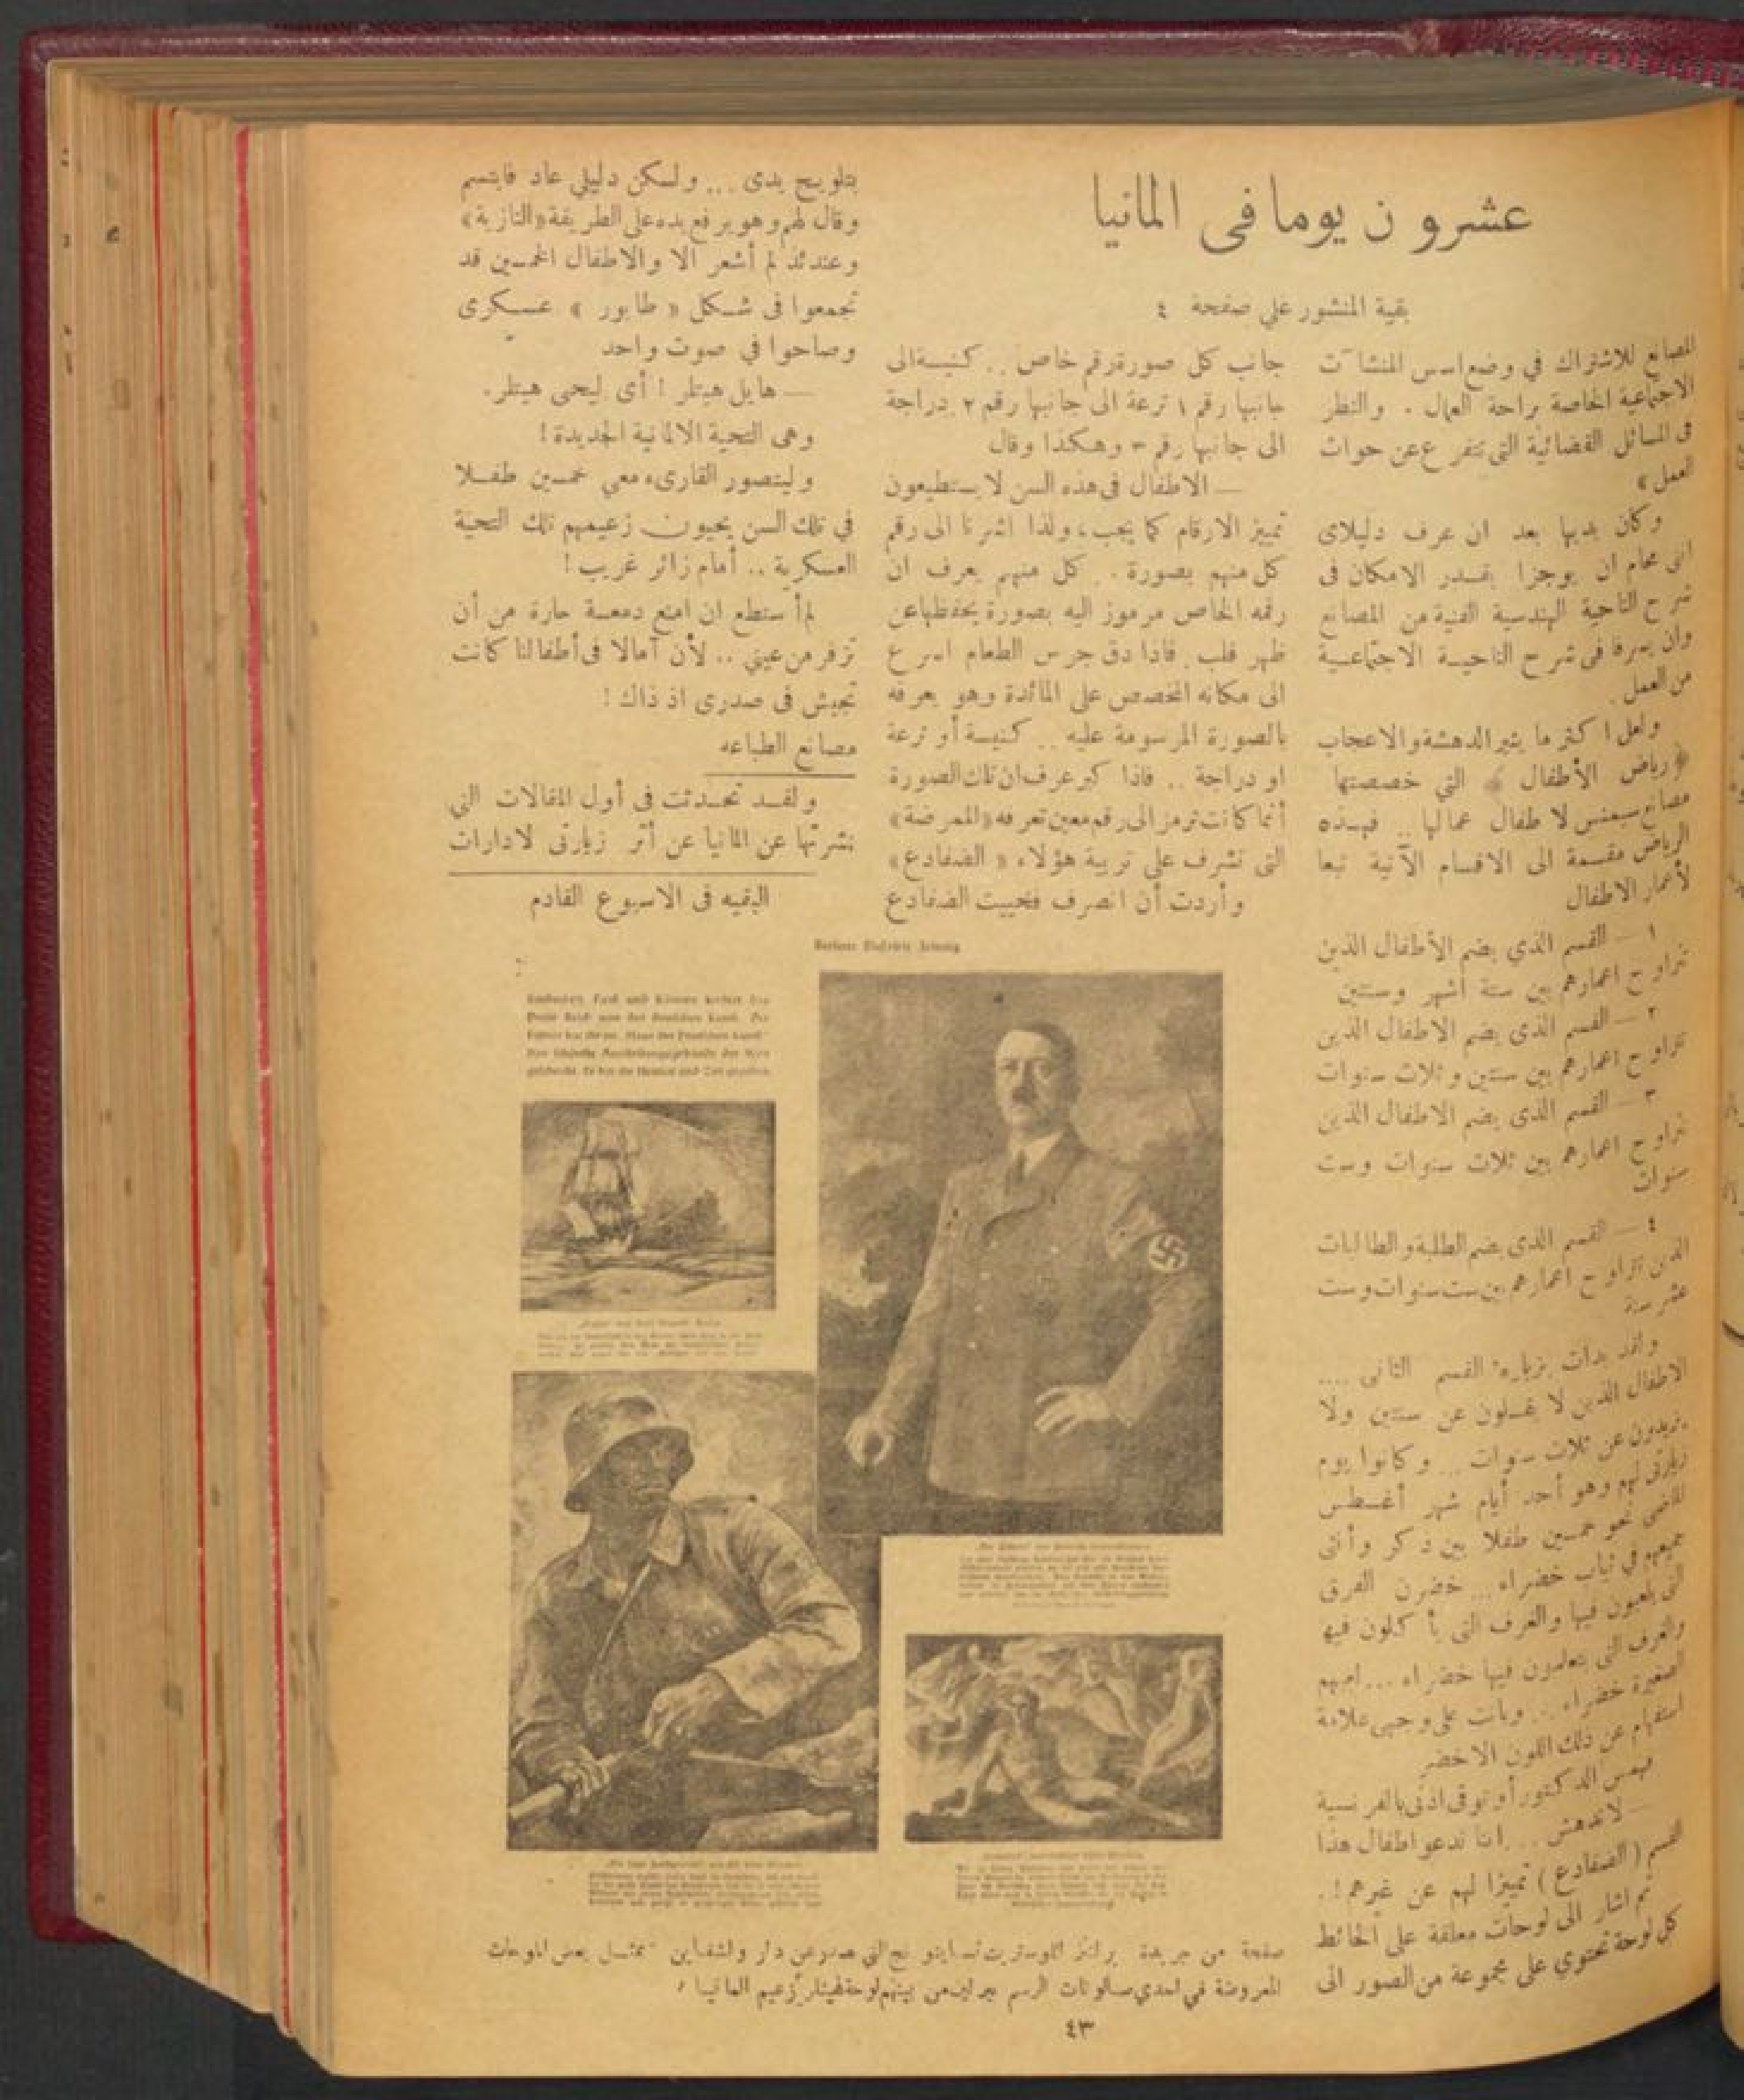 عشرو ن يوما فى المانيا
بقية المنشور على صفحة ٤
المصانع للاشتراك في وضع اسس المنشآت
الاجتماعية الخاصة براحة العمال . والنظر
فى المسائل القضائية التى تتفرع عن حوادث
العمل »
وكان بديها بعد ان عرف دليلاى
انى محام ان يوجزا بقدر الامكان فى
شرح الناحية الهندسية الفنية من المصانع
وان يسرفا فى شرح الناحية الاجتماعية
من العمل .
ولعل اكثر ما يثير الدهشة والاعجاب
« رياض الأطفال » التي خصصتها
مصانع سيمنس لاطفال عمالها .. فهذه
الرياض مقسمة الى الاقسام الآتية تبعا
لأعمار الاطفال
١ — القسم الذي يضم الأطفال الذين
تتراوح اعمارهم بين ستة أشهر وسنتين
٢ — القسم الذى يضم الاطفال الذين
تتراوح اعمارهم بين سنتين وثلاث سنوات
٣ — القسم الذى يضم الاطفال الذين
تتراوح اعمارهم بين ثلاث سنوات وست
سنوات
٤ — القسم الذى يضم الطلبة والطالبات
الذين تتراوح اعمارهم بين ست سنوات وست
عشر سنة
ولقد بدأت بزيارة القسم الثانى ....
الاطفال الذين لا يقلون عن سنتين ولا
يزيدون عن ثلاث سنوات ... وكانوا يوم
زيارتى لهم وهو أحد أيام شهر أغسطس
الماضى نحو خمسين طفلا بين ذكر وأنثى
جميعهم في ثياب خضراء... خضرن الفرق
التى يلعبون فيها والغرف التى يأكلون فيها
والغرف التى يتعلمون فيها خضراء ... امهم
الصغيرة خضراء ... وبانت على وجهى علامة
استفهام عن ذلك اللون الاخضر
فهمس الدكتور أوتوفى اذنى بالفرنسية
— لاتدهش .. اننا ندعو اطفال هذا
القسم ( الضفادع ) تمييزا لهم عن غيرهم ! .
ثم اشار الى لوحات معلقة على الحائط
كل لوحة تحتوي على مجموعة من الصور الى
جانب كل صورة رقم خاص .. كنيسة الى
جانبها رقم ١ ترعة الى جانبها رقم ٢ دراجة
الى جانبها رقم ٣ وهكذا وقال
— الاطفال فى هذه السن لا يستطيعون
تمييز الارقام كما يجب ، ولذا اشرنا الى رقم
كل منهم بصورة .. كل منهم يعرف ان
رقمه الخاص مرموز اليه بصورة يحفظها عن
ظهر قلب . فاذا دق جرس الطعام اسرع
الى مكانه المخصص على المائدة وهو يعرفه
بالصورة المرسومة عليه .. كنيسة أو ترعة
او دراجة .. فاذا كبر عرف ان تلك الصورة
أنما كانت ترمز الى رقم معين تعرفه « الممرضة »
التى تشرف على تربية هؤلاء « الضفادع »
وأردت أن انصرف فحييت الضفادع
بتلويح يدى ... ولكن دليلي عاد فابتسم
وقال لهم وهو يرفع يده على الطريقة « النازية »
وعندئذ لم أشعر الا والاطفال الخمسين قد
تجمعوا فى شكل « طابور » عسكرى
وصاحوا في صوت واحد
— هايل هيتلر ! أى ليحى هيتلر .
وهى التحية الالمانية الجديدة !
وليتصور القارىء معي خمسين طفلا
في تلك السن يحيون زعيمهم تلك التحية
العسكرية .. أمام زائر غريب !
لم أستطع ان امنع دمعة حارة من أن
تزفر من عيني .. لأن آمالا فى أطفالنا كانت
تجيش فى صدرى اذ ذاك !
مصانع الطباعه
ولقد تحدثت فى أول المقالات التي
نشرتها عن المانيا عن أثر زيارتى لادارات
البقيه فى الاسبوع القادم
صفحة من جريدة برلنر اللوستريت تسايتونج التي تصدر عن دار ولشتاين تمثل بعض اللوحات
المعروضة في احدي صالونات الرسم ببرلين من بينهم لوحة هيتلر زعيم المانيا
٤٣